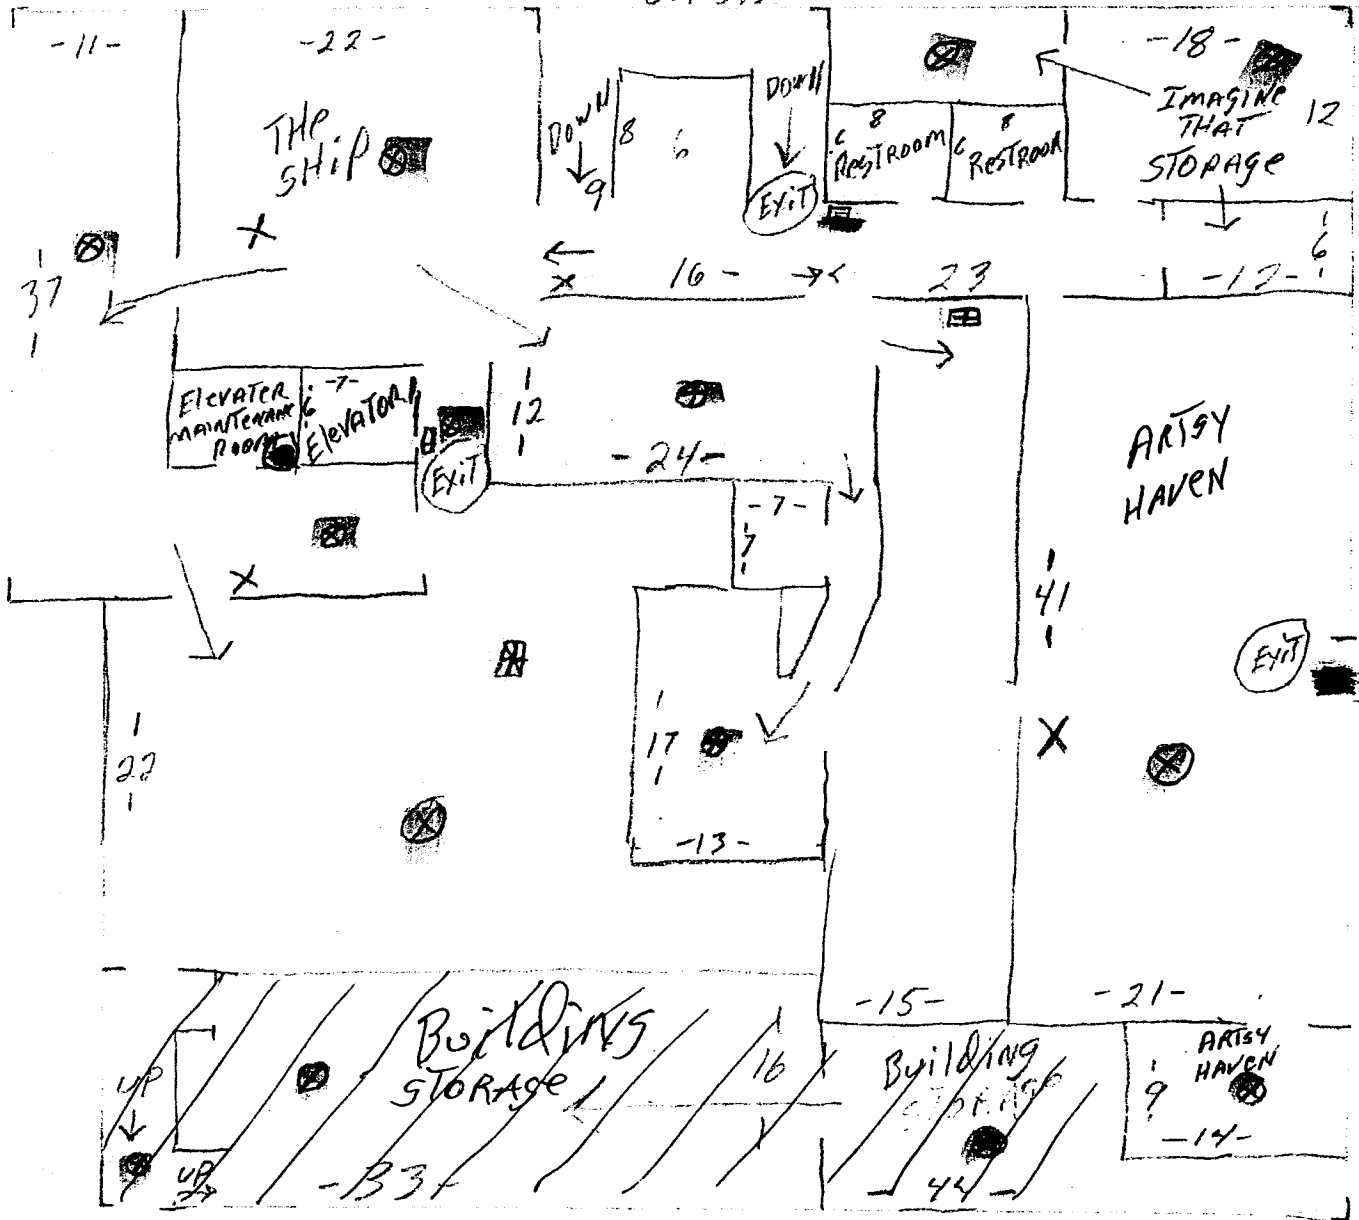 -11-
-22-
-18-
THE
SHIP
DOWN
9
8
6
DOWN
EXIT
6
8
RESTROOM
6
8
RESTROOM
IMAGINE
THAT
STORAGE
12
6
37
16 -
23
-12-
ELEVATER
MAINTENANCE
ROOM
-7-
6
ELEVATOR
EXIT
12
-24-
-7-
7
ARTSY
HAVEN
41
EXIT
22
17
-13-
-15-
-21-
BUILDING
STORAGE
16
BUILDING
STORAGE
ARTSY
HAVEN
9
-14-
UP
UP
44